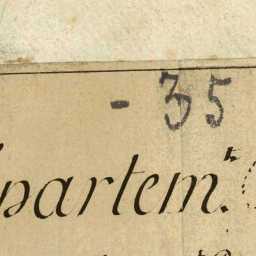 - 35
partem.t